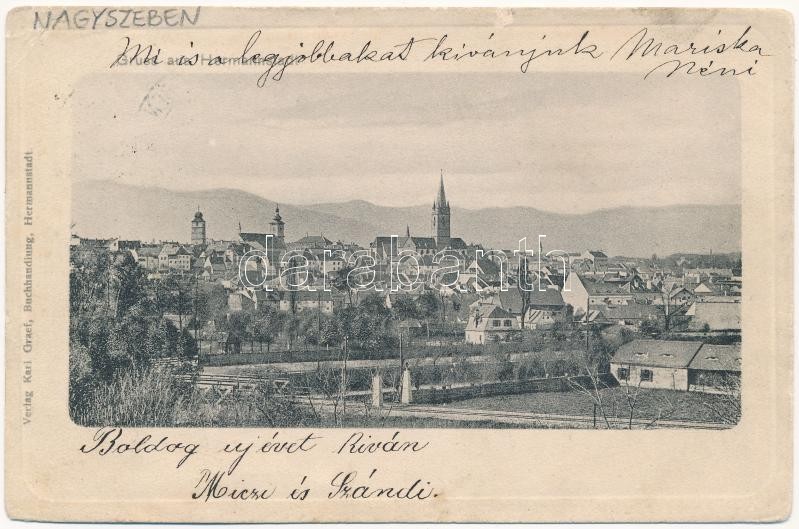 NAGYSZEBEN
Mi is a legjobbakat kivánjuk Mariska
Néni
Gruss aus Hermannstadt
Verlag Karl Graef, Buchhandlung, Hermannstadt
darabanth
Boldog ujévet kiván
Micze és Szándi.